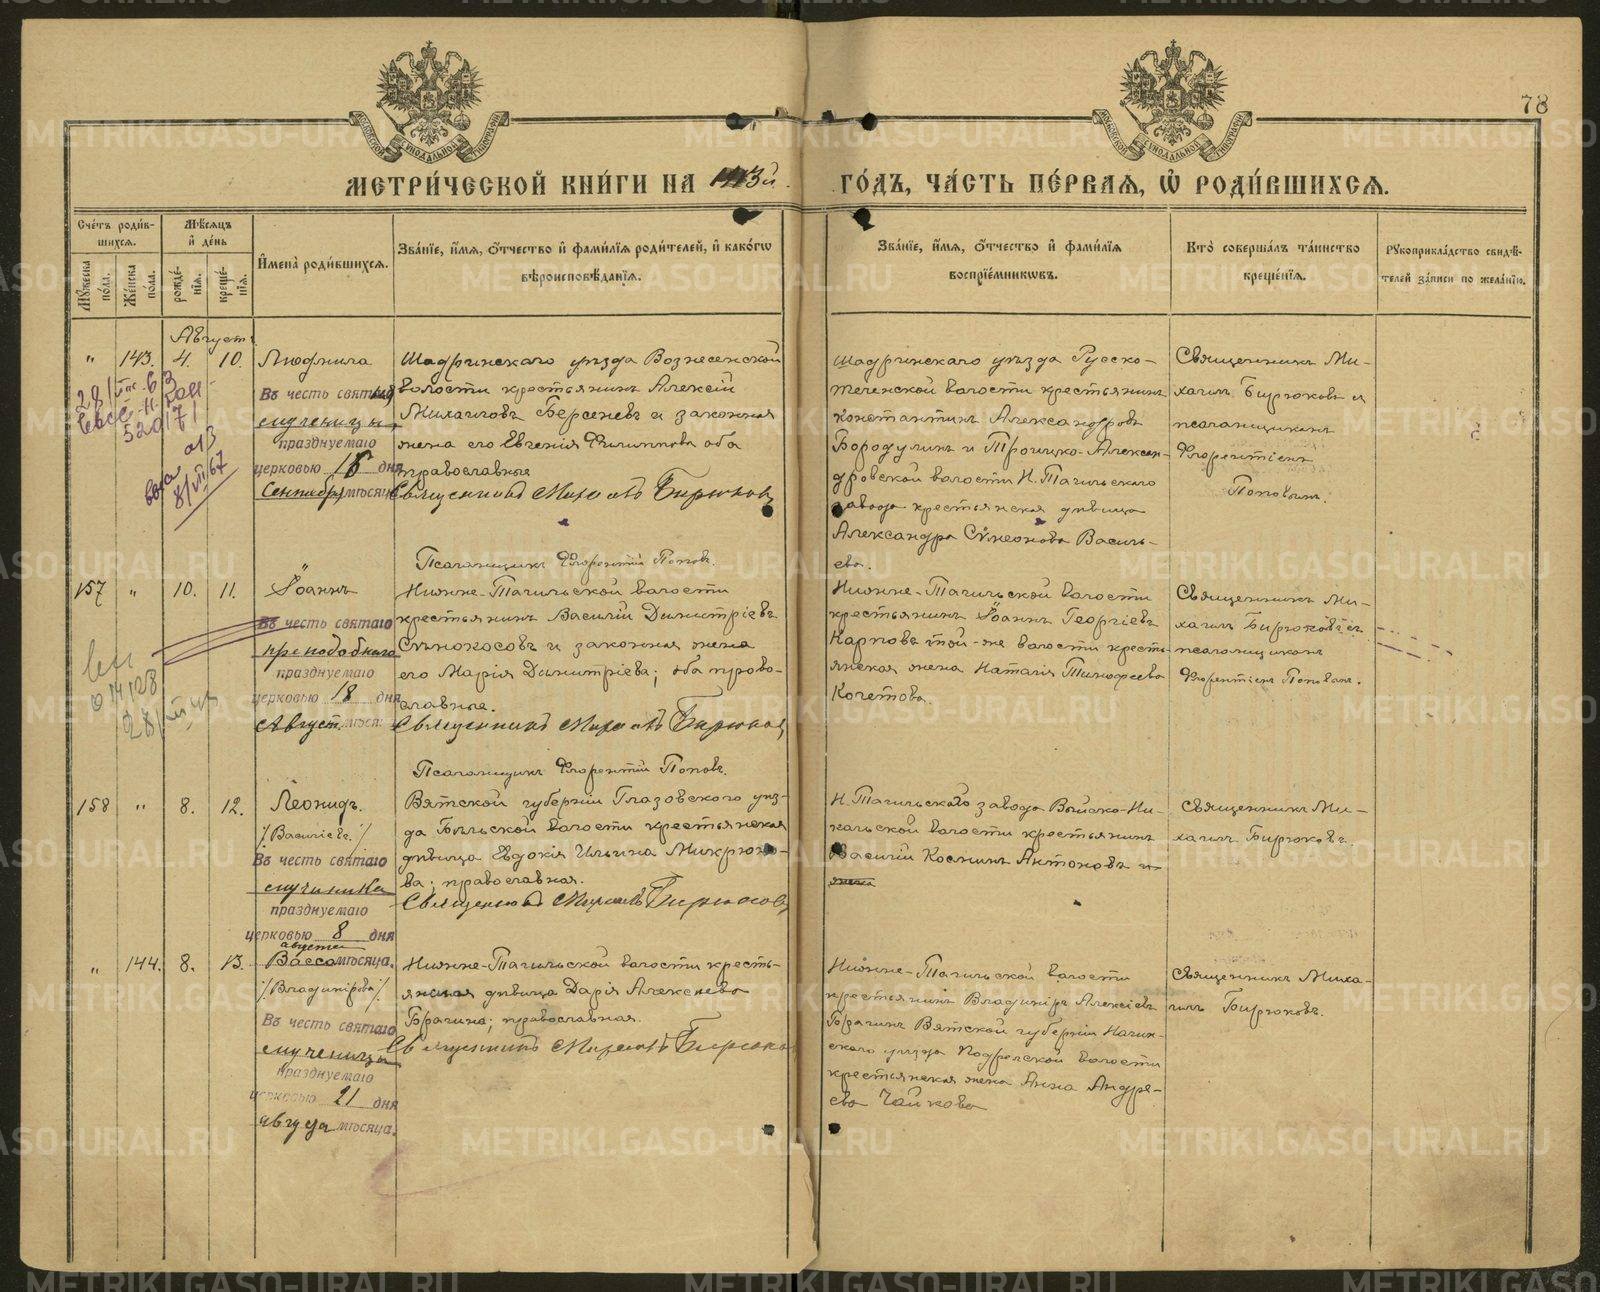 78
МЕТРИ́ЧЕСКОЙ КНИ́ГИ НА 1913й ГО́ДЪ, ЧА́СТЬ ПЕ́РВАЯ, Ѿ РОДИ́ВШИХСЯ.
Сче́тъ роди́вшихся.
Му́жеска по́ла.
Же́нска по́ла.
Мѣ́сяцъ и҆ де́нь
рожде́нїя.
креще́нїя.
И҆мена̀ роди́вшихся.
Зва́нїе, и҆́мя, ѻ҆́тчество и҆ фами́лїя роди́телей, и҆ како́гѡ
вѣроисповѣ́данїя.
Зва́нїе, и҆́мя, ѻ҆́тчество и҆ фами́лїя
воспрїе́мникѡвъ.
Кто̀ соверша́лъ та́инство
креще́нїя.
Рꙋкоприкла́дство свидѣ́-
телей за́писи по жела́нїю.
Августъ
" 143. 4. 10. Людмила
Въ честь святыя
мученицы
празднуемаго
церковью 16 дня
Сентября мѣсяца
Шадринскаго уѣзда Вознесенской
волости крестьянинъ Алексій
Михаиловъ Берсеневъ и законная
жена его Евгенія Филиппова оба
православные
Священникъ Михаилъ Бирюковъ
Псаломщикъ Флорентій Поповъ.
Шадринскаго уѣзда Русско-
теченской волости крестьянинъ
Константинъ Александровъ
Бородулинъ и Троицко-Алексан-
дровской волости Н. Тагильскаго
завода крестьянская дѣвица
Александра Сѵмеонова Василь-
ева.
Священникъ Ми-
хаилъ Бирюковъ и
псаломщикомъ
Флорентіемъ
Поповымъ.
157 " 10. 11. Іоаннъ
Въ честь святаго
преподобнаго
празднуемаго
церковью 18 дня
Август. мѣсяц.
Нижне-Тагильской волости
крестьянинъ Василій Димитріевъ
Сѣнокосовъ и законная жена
его Марія Димитріева; оба право-
славные.
Священникъ Михаилъ Бирюковъ
Псаломщикъ Флорентій Поповъ.
Нижне-Тагильской волости
крестьянинъ Іоаннъ Георгіевъ
Карповъ той-же волости кресть-
янская жена Наталія Тимофеева
Кочетова.
Священникъ Ми-
хаилъ Бирюковъ съ
псаломщикомъ
Флорентіемъ Поповымъ.
158 " 8. 12. Леонидъ.
/Василіевъ./
Въ честь святаго
мученика
празднуемаго
церковью 8 дня
августа
мѣсяца.
Вятской губерніи Глазовскаго уѣз-
да Бѣльской волости крестьянская
дѣвица Евдокія Ильина Микрюко-
ва; православная.
Священникъ Михаилъ Бирюковъ
Н. Тагильскаго завода Выйско-Ни-
кольской волости крестьянинъ
Василій Косминъ Антоновъ и
жена
Священникъ Ми-
хаилъ Бирюковъ.
" 144. 8. 13. Васса
/Владимірова/
Въ честь святаго
мученицы
празднуемаго
церковью 21 дня
августа мѣсяца.
Нижне-Тагильской волости кресть-
янская дѣвица Дарія Алексѣева
Брагина; православная.
Священникъ Михаилъ Бирюковъ
Нижне-Тагильской волости
крестьянинъ Владиміръ Алексіевъ
Брагинъ Вятской губерніи
уѣзда волости
крестьянская жена Анна Андре-
ева Чайкова
Священникъ Миха-
илъ Бирюковъ.
METRIKI.GASO-URAL.RU